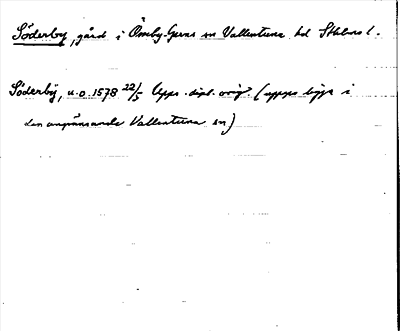 Söderby, gård i Össeby-Garns sn Vallentuna hd Sthlms l.
Söderbij, u.o. 1578 22/5 Upps. dipl. orig. (uppges ligga i
den angränsande Vallentuna sn)